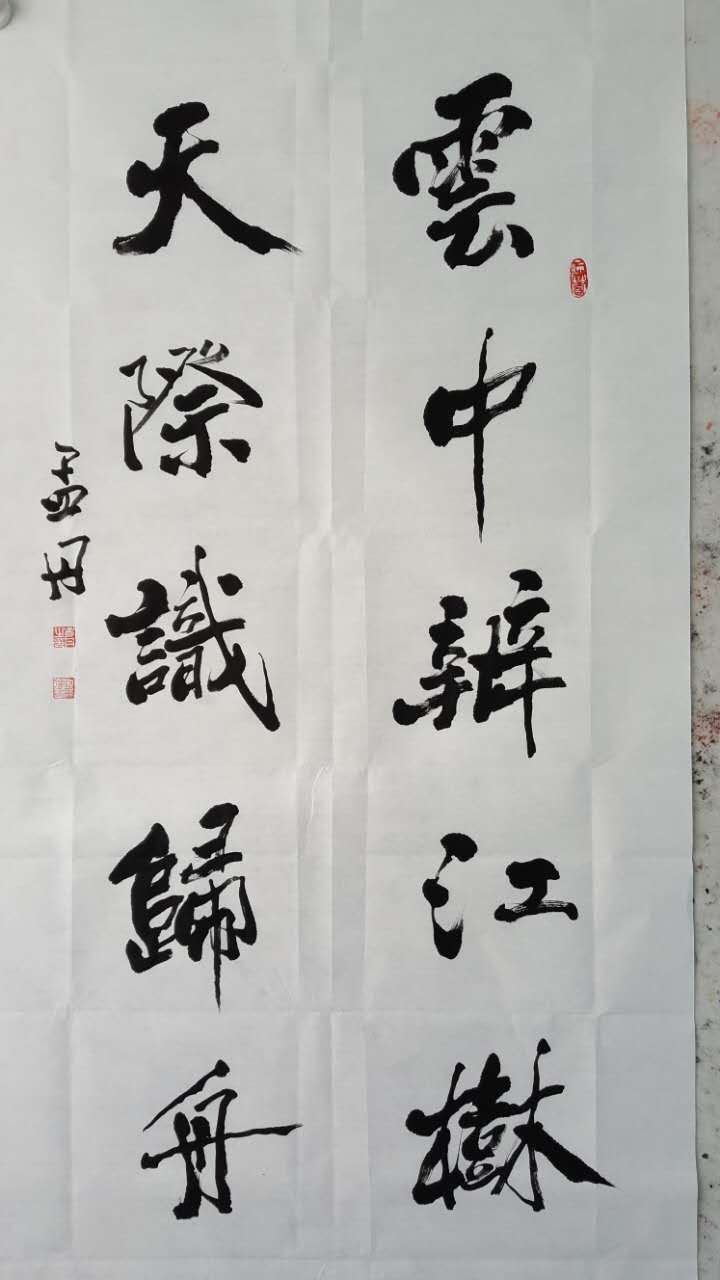 雲中辨江樹
天際識歸舟
孟